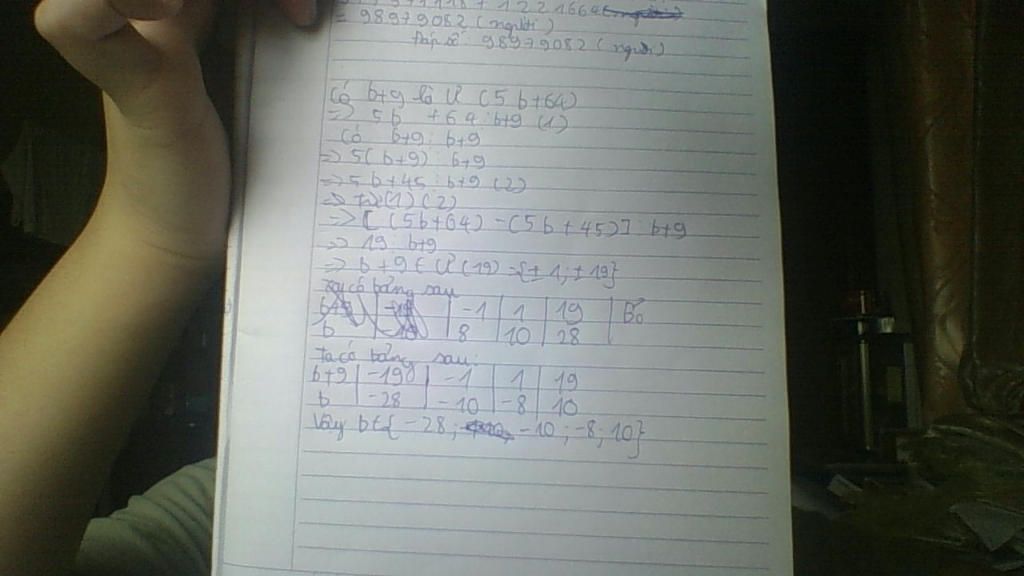 1221664
= 98979082 (người)
Đáp số: 98979082 (người)
Có b+9 là Ư (5b+64)
=> 5b +64 ⋮ b+9 (1)
Có b+9 ⋮ b+9
=> 5(b+9) ⋮ b+9
=> 5b+45 ⋮ b+9 (2)
=> Từ (1) (2)
=> [(5b+64) - (5b+45)] ⋮ b+9
=> 19 ⋮ b+9
=> b+9 ∈ Ư(19) = {±1; ±19}
Ta có bảng sau
b+9 | | -1 | 1 | 19 | Bỏ
b | | 8 | 10 | 28
Ta có bảng sau:
b+9 | -19 | -1 | 1 | 19
b | -28 | -10 | -8 | 10
Vậy b∈{-28; -10; -8; 10}